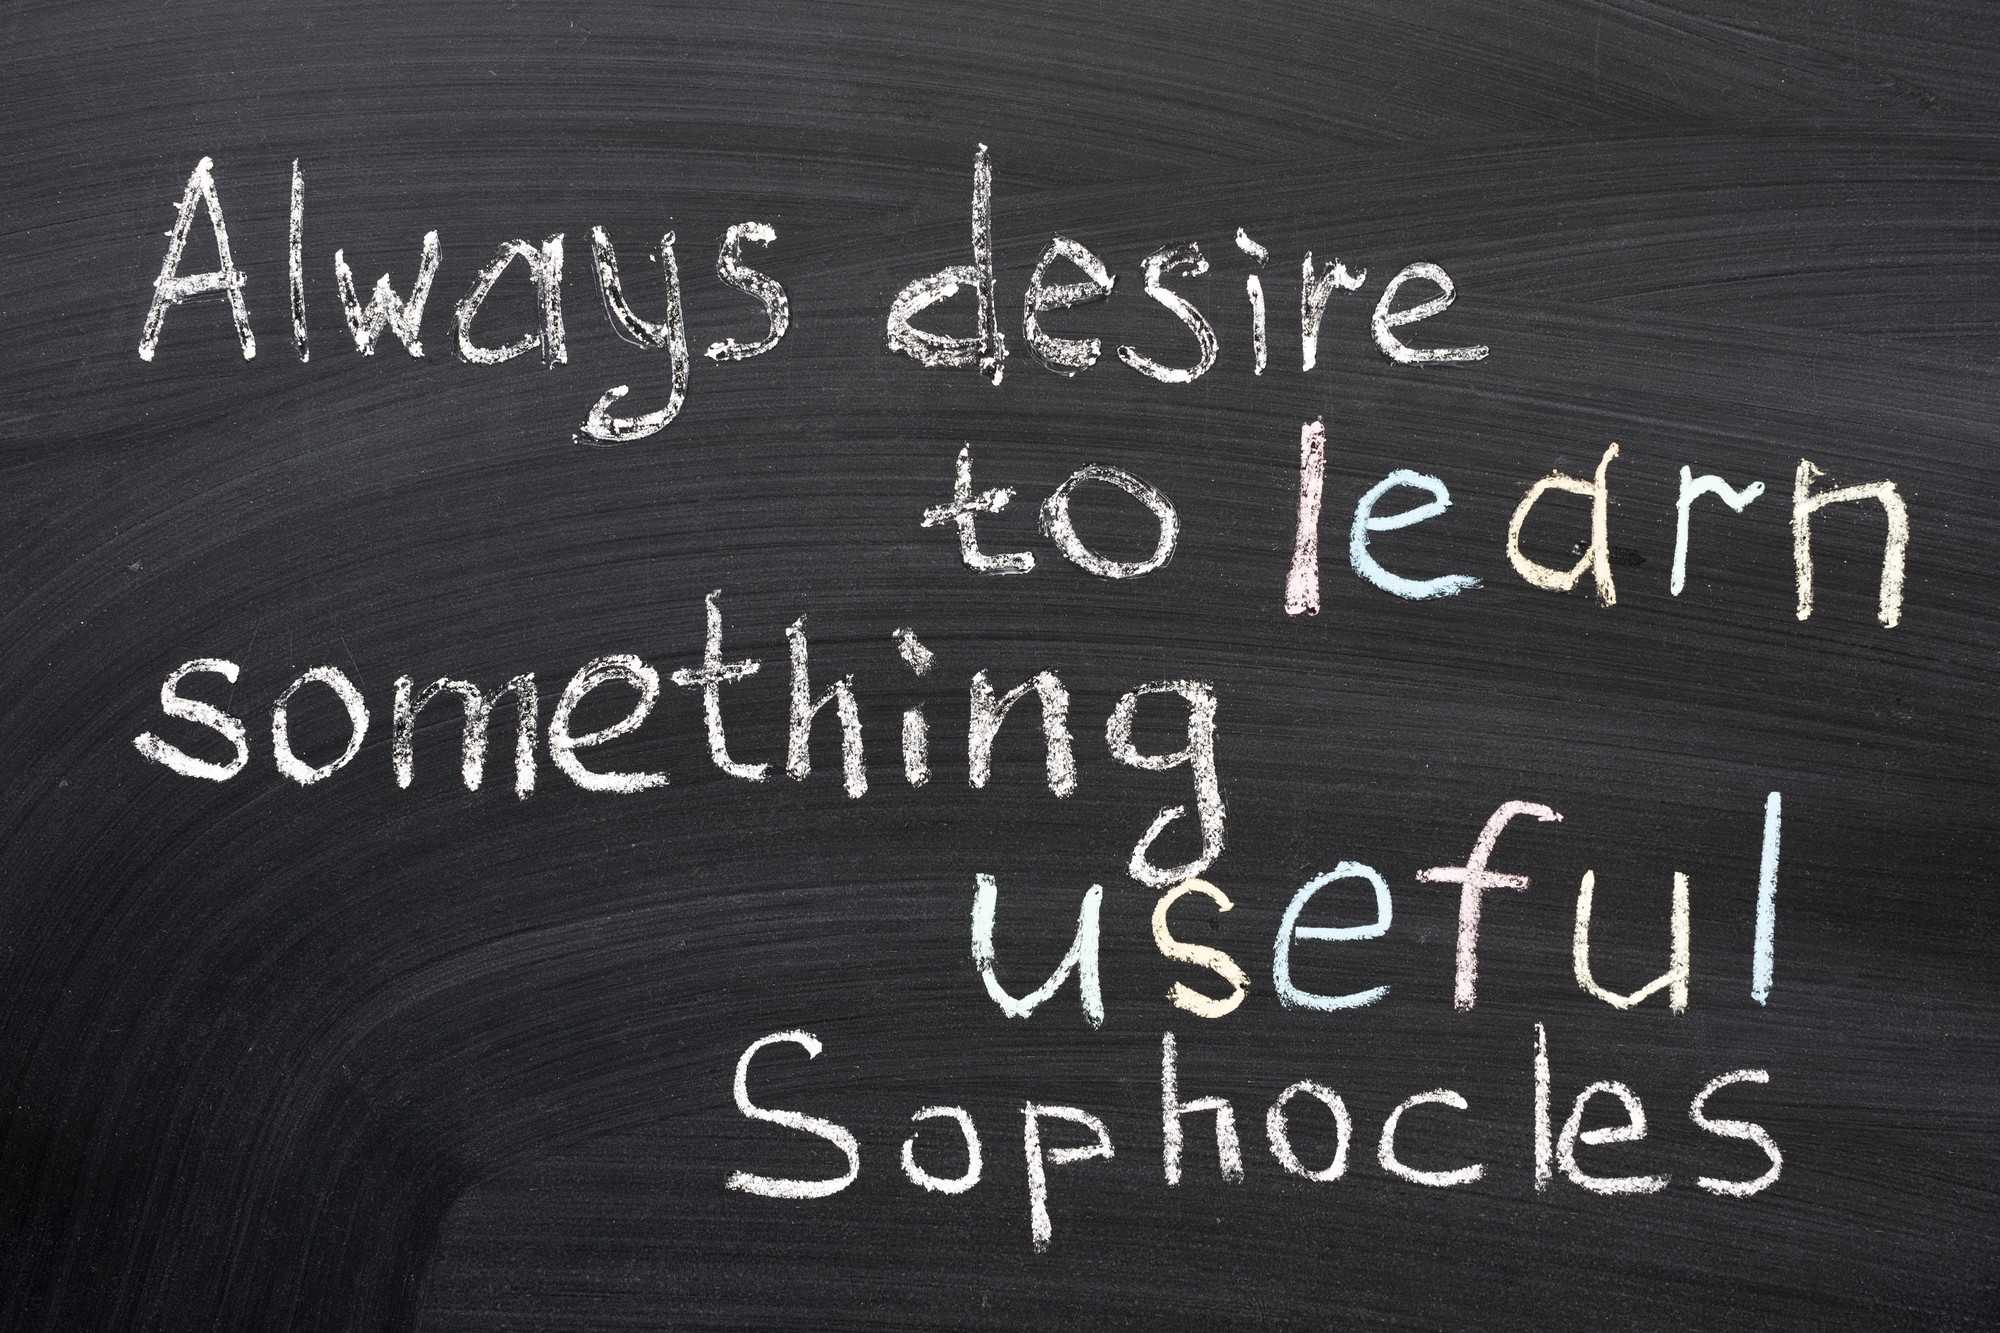 Always desire
to learn
something
useful
Sophocles